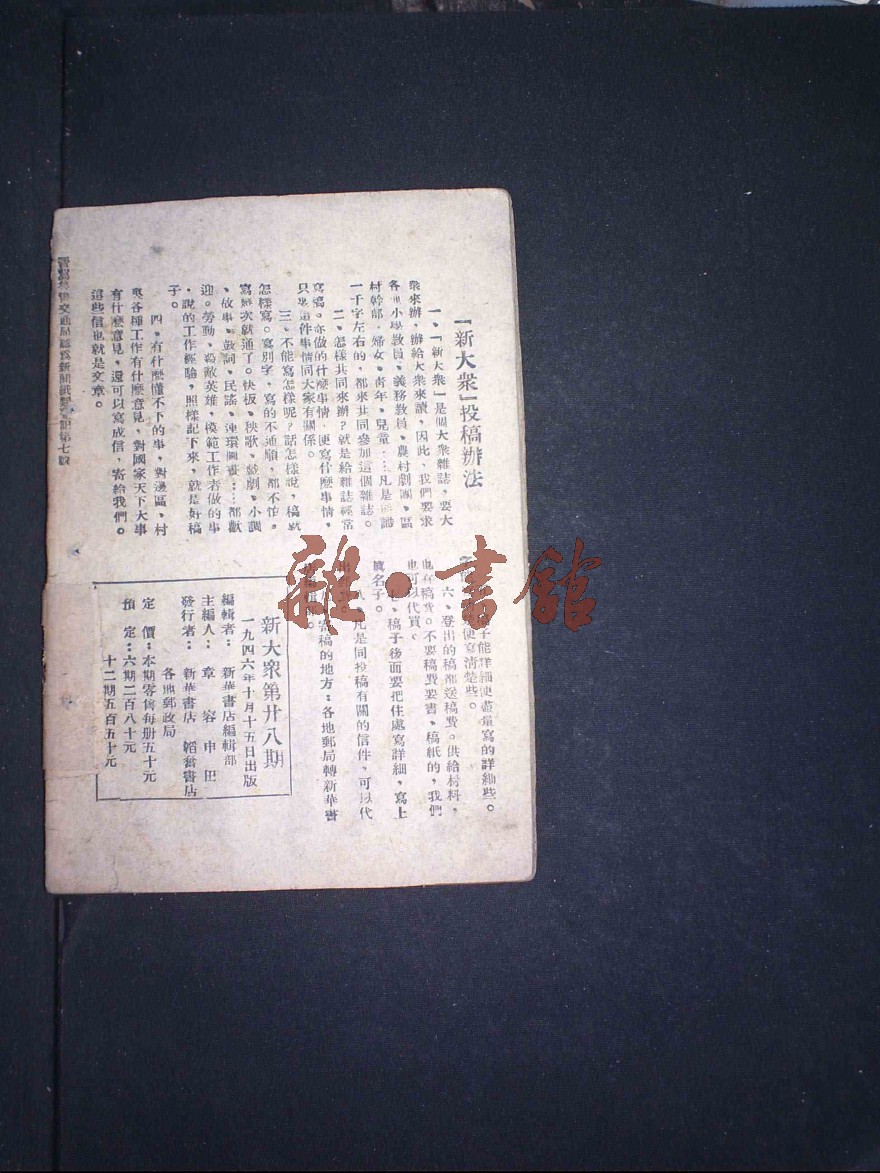 「新大衆」投稿辦法
一、「新大衆」是個大衆雜誌，要大
衆來辦，辦給大衆來讀，因此，我們要求
各地小學教員、義務教員、農村劇團、區
村幹部、婦女、青年、兒童……凡是能識
一千字左右的，都來共同參加這個雜誌。
二、怎樣共同來辦？就是給雜誌經常
寫稿。你做的什麼事情，便寫什麼事情，
只要這件事情同大家有關係。
三、不能寫怎樣呢？話怎樣說，稿就
怎樣寫。寫別字，寫的不通順，都不怕，
寫幾次就通了。快板、秧歌、戲劇、小調
、故事、鼓詞、民謠、連環圖畫……都歡
迎。勞動、殺敵英雄、模範工作者做的事
，說的工作經驗，照樣記下來，就是好稿
子。
四、有什麼懂不下的事，對邊區、村
裏各種工作有什麼意見，對國家天下大事
有什麼意見，還可以寫成信，寄給我們。
這些信也就是文章。
子能詳細便盡量寫的詳細些。
便寫清楚些。
六、登出的稿都送稿費。供給材料，
也有稿費。不要稿費要書、稿紙的，我們
也可以代買。
稿子後面要把住處寫詳細，寫上
眞名子。
凡是同投稿有關的信件，可以代
寄稿的地方：各地郵局轉新華書
新大衆第廿八期
一九四六年十月十五日出版
編輯者：新華書店編輯部
主編人：章容 申田
發行者：新華書店 韜奮書店
各地郵政局
定價：本期零售每册五十元
預定：六期二百八十元
十二期五百五十元
雜·書館